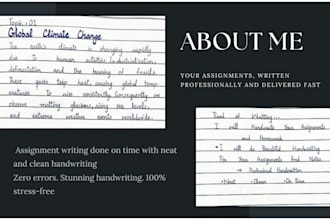 Topic : 01
Global Climate Change
The earth's climate is changing rapidly
due to human activities, industrialization,
deforestation and the burning of fossils.
These gases trap heat, causing global temp
eratures to rise consistently. Consequently we
observe melting glaciers, rising sea levels,
and extreme weather events worldwide.
Assignment writing done on time with neat
and clean handwriting
Zero errors. Stunning handwriting. 100%
stress-free
ABOUT ME
YOUR ASSIGNMENTS, WRITTEN
PROFESSIONALLY AND DELIVERED FAST
Tired of Writting...
I will Handwrite Your Assignments
and Homework
I will do Beautiful Handwriting
For Your Assignments And Notes
Professional Handwritten
Neat Clean On time